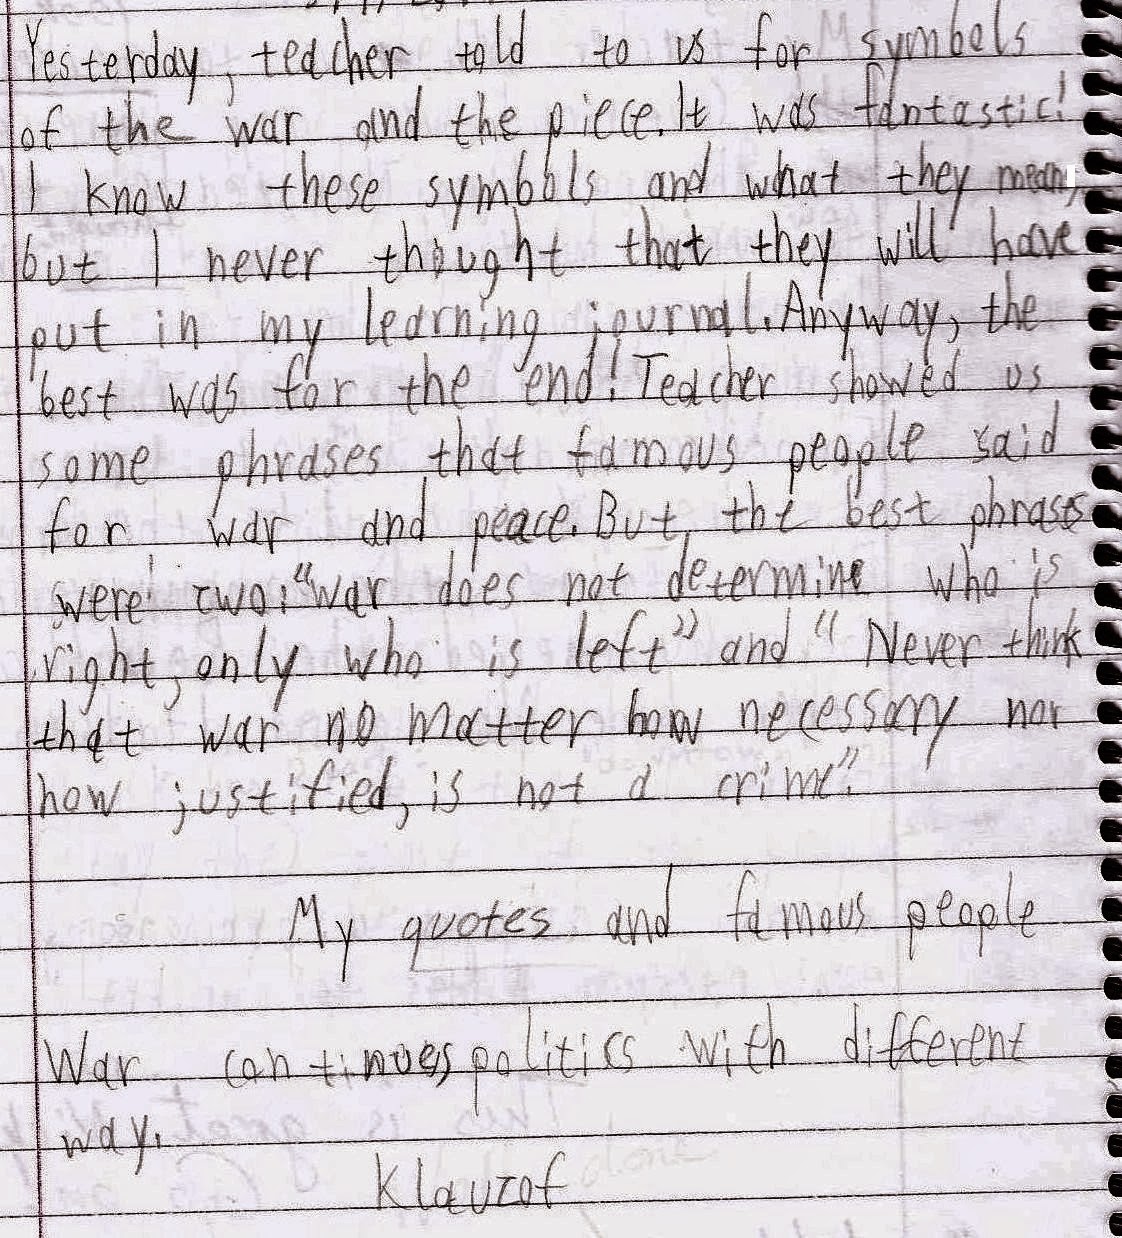 Yesterday, teacher told to us for symbols
of the war and the piece. It was fantastic!
I know these symbols and what they mean,
but I never thought that they will have
put in my learning journal. Anyway, the
best was for the end! Teacher showed us
some phrases that famous people said
for war and peace. But, the best phrases
were two: "war does not determine who is
right, only who is left" and "Never think
that war no matter how necessary nor
how justified, is not a crime".
My quotes and famous people
War continues politics with different
way.
Klauzof